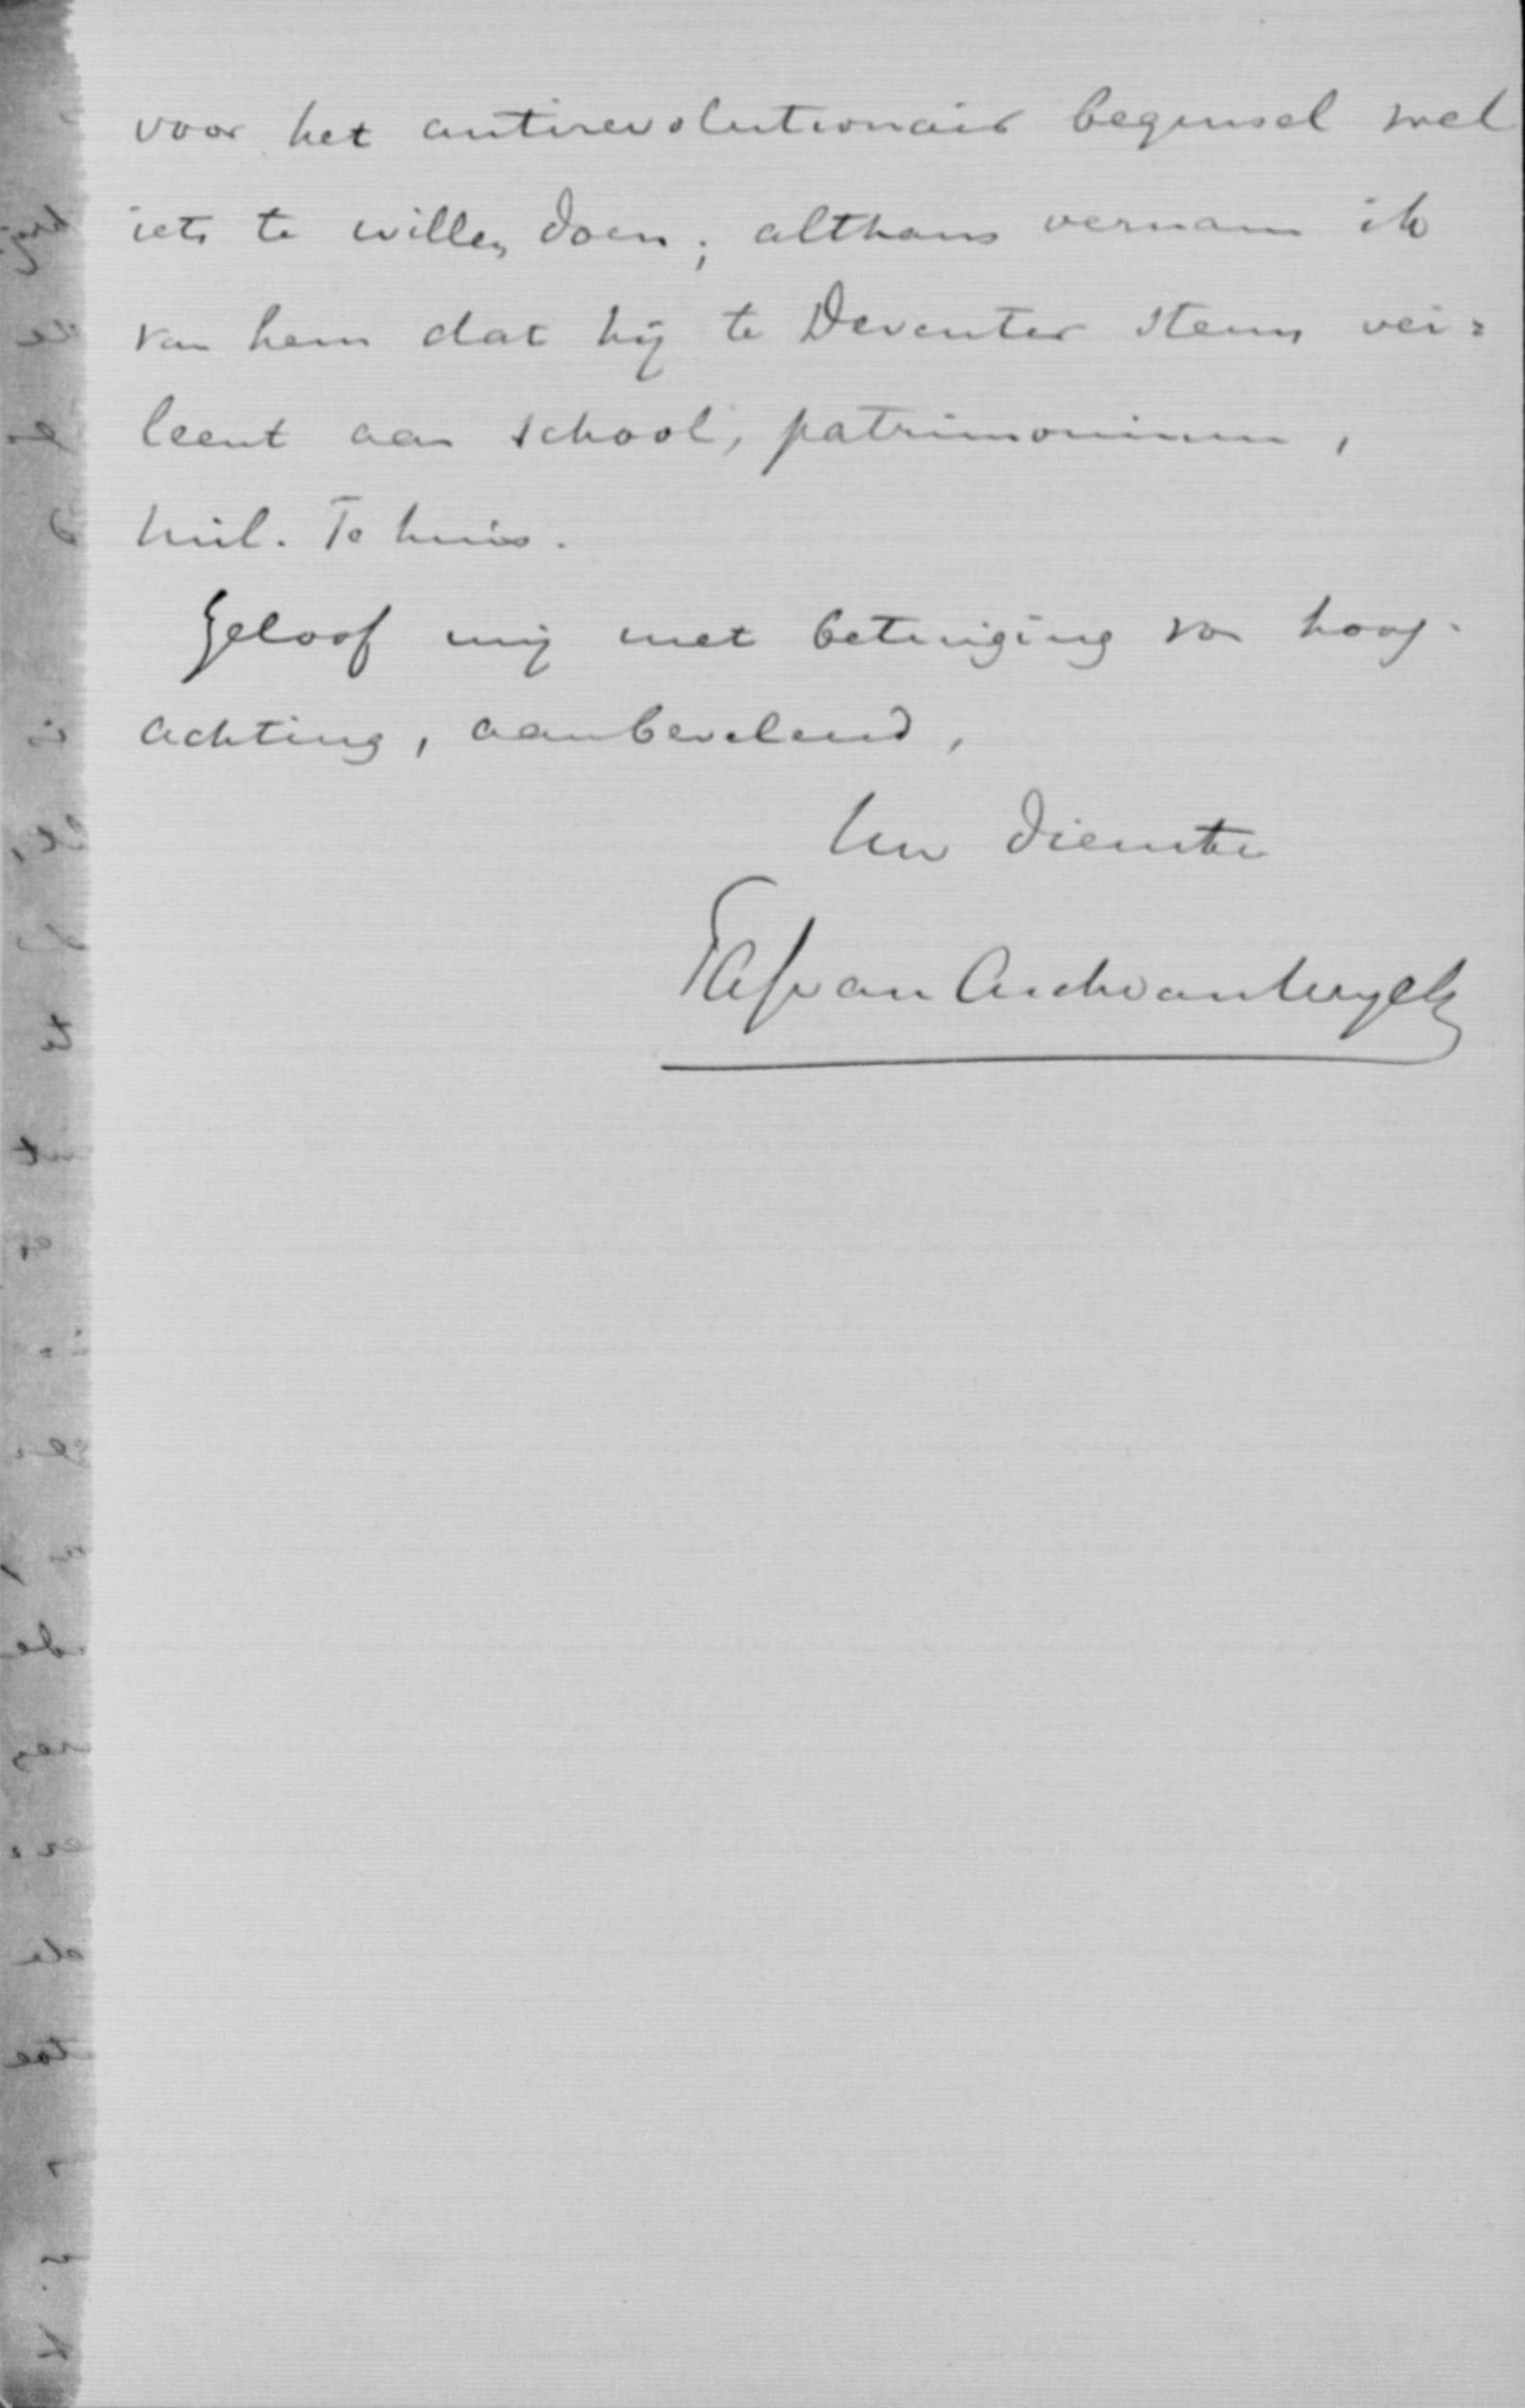 voor het antirevolutionair beginsel wel
iets te willen doen; althans vernam ik
van hem dat hij te Deventer steun ver=
leent aan school, patrimonium,
Mil. Tehuis.
Geloof mij met betuiging van hoog-
achting, aanbevelend,
Uw Dienstw
van Asch van Wyck